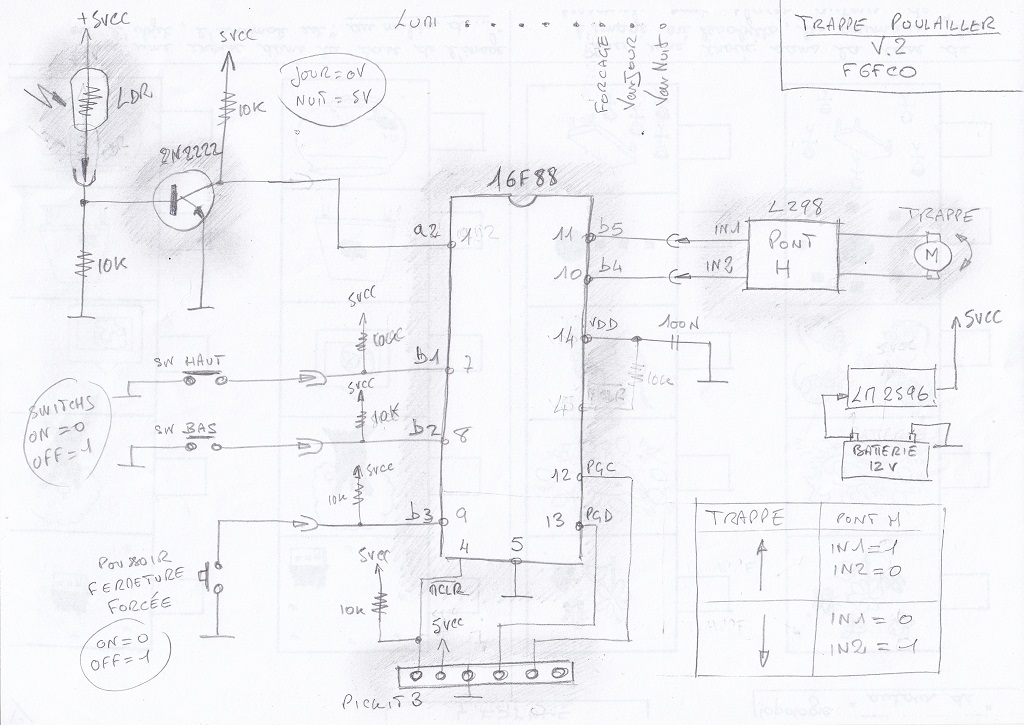 +5VCC
5VCC
LUMI
FORCAGE
Van Jour
Van Nuit
TRAPPE POULAILLER
V.2
F6FCO
LDR
10K
JOUR = 0V
NUIT = 5V
2N2222
10K
16F88
a2
1
11
b5
IN1
10
b4
IN2
L298
PONT
H
TRAPPE
M
5VCC
10K
b1
7
14
VDD
100N
10K
4
5VCC
LM2596
BATTERIE
12V
SW HAUT
5VCC
10K
b2
8
SW BAS
SWITCHS
ON = 0
OFF = 1
12
PGC
5VCC
10K
b3
9
13
PGD
4
5
MCLR
POUSSOIR
FERMETURE
FORCÉE
ON = 0
OFF = 1
5VCC
10K
5VCC
PICKIT 3
TRAPPE
PONT H
IN1 = 1
IN2 = 0
IN1 = 0
IN2 = 1